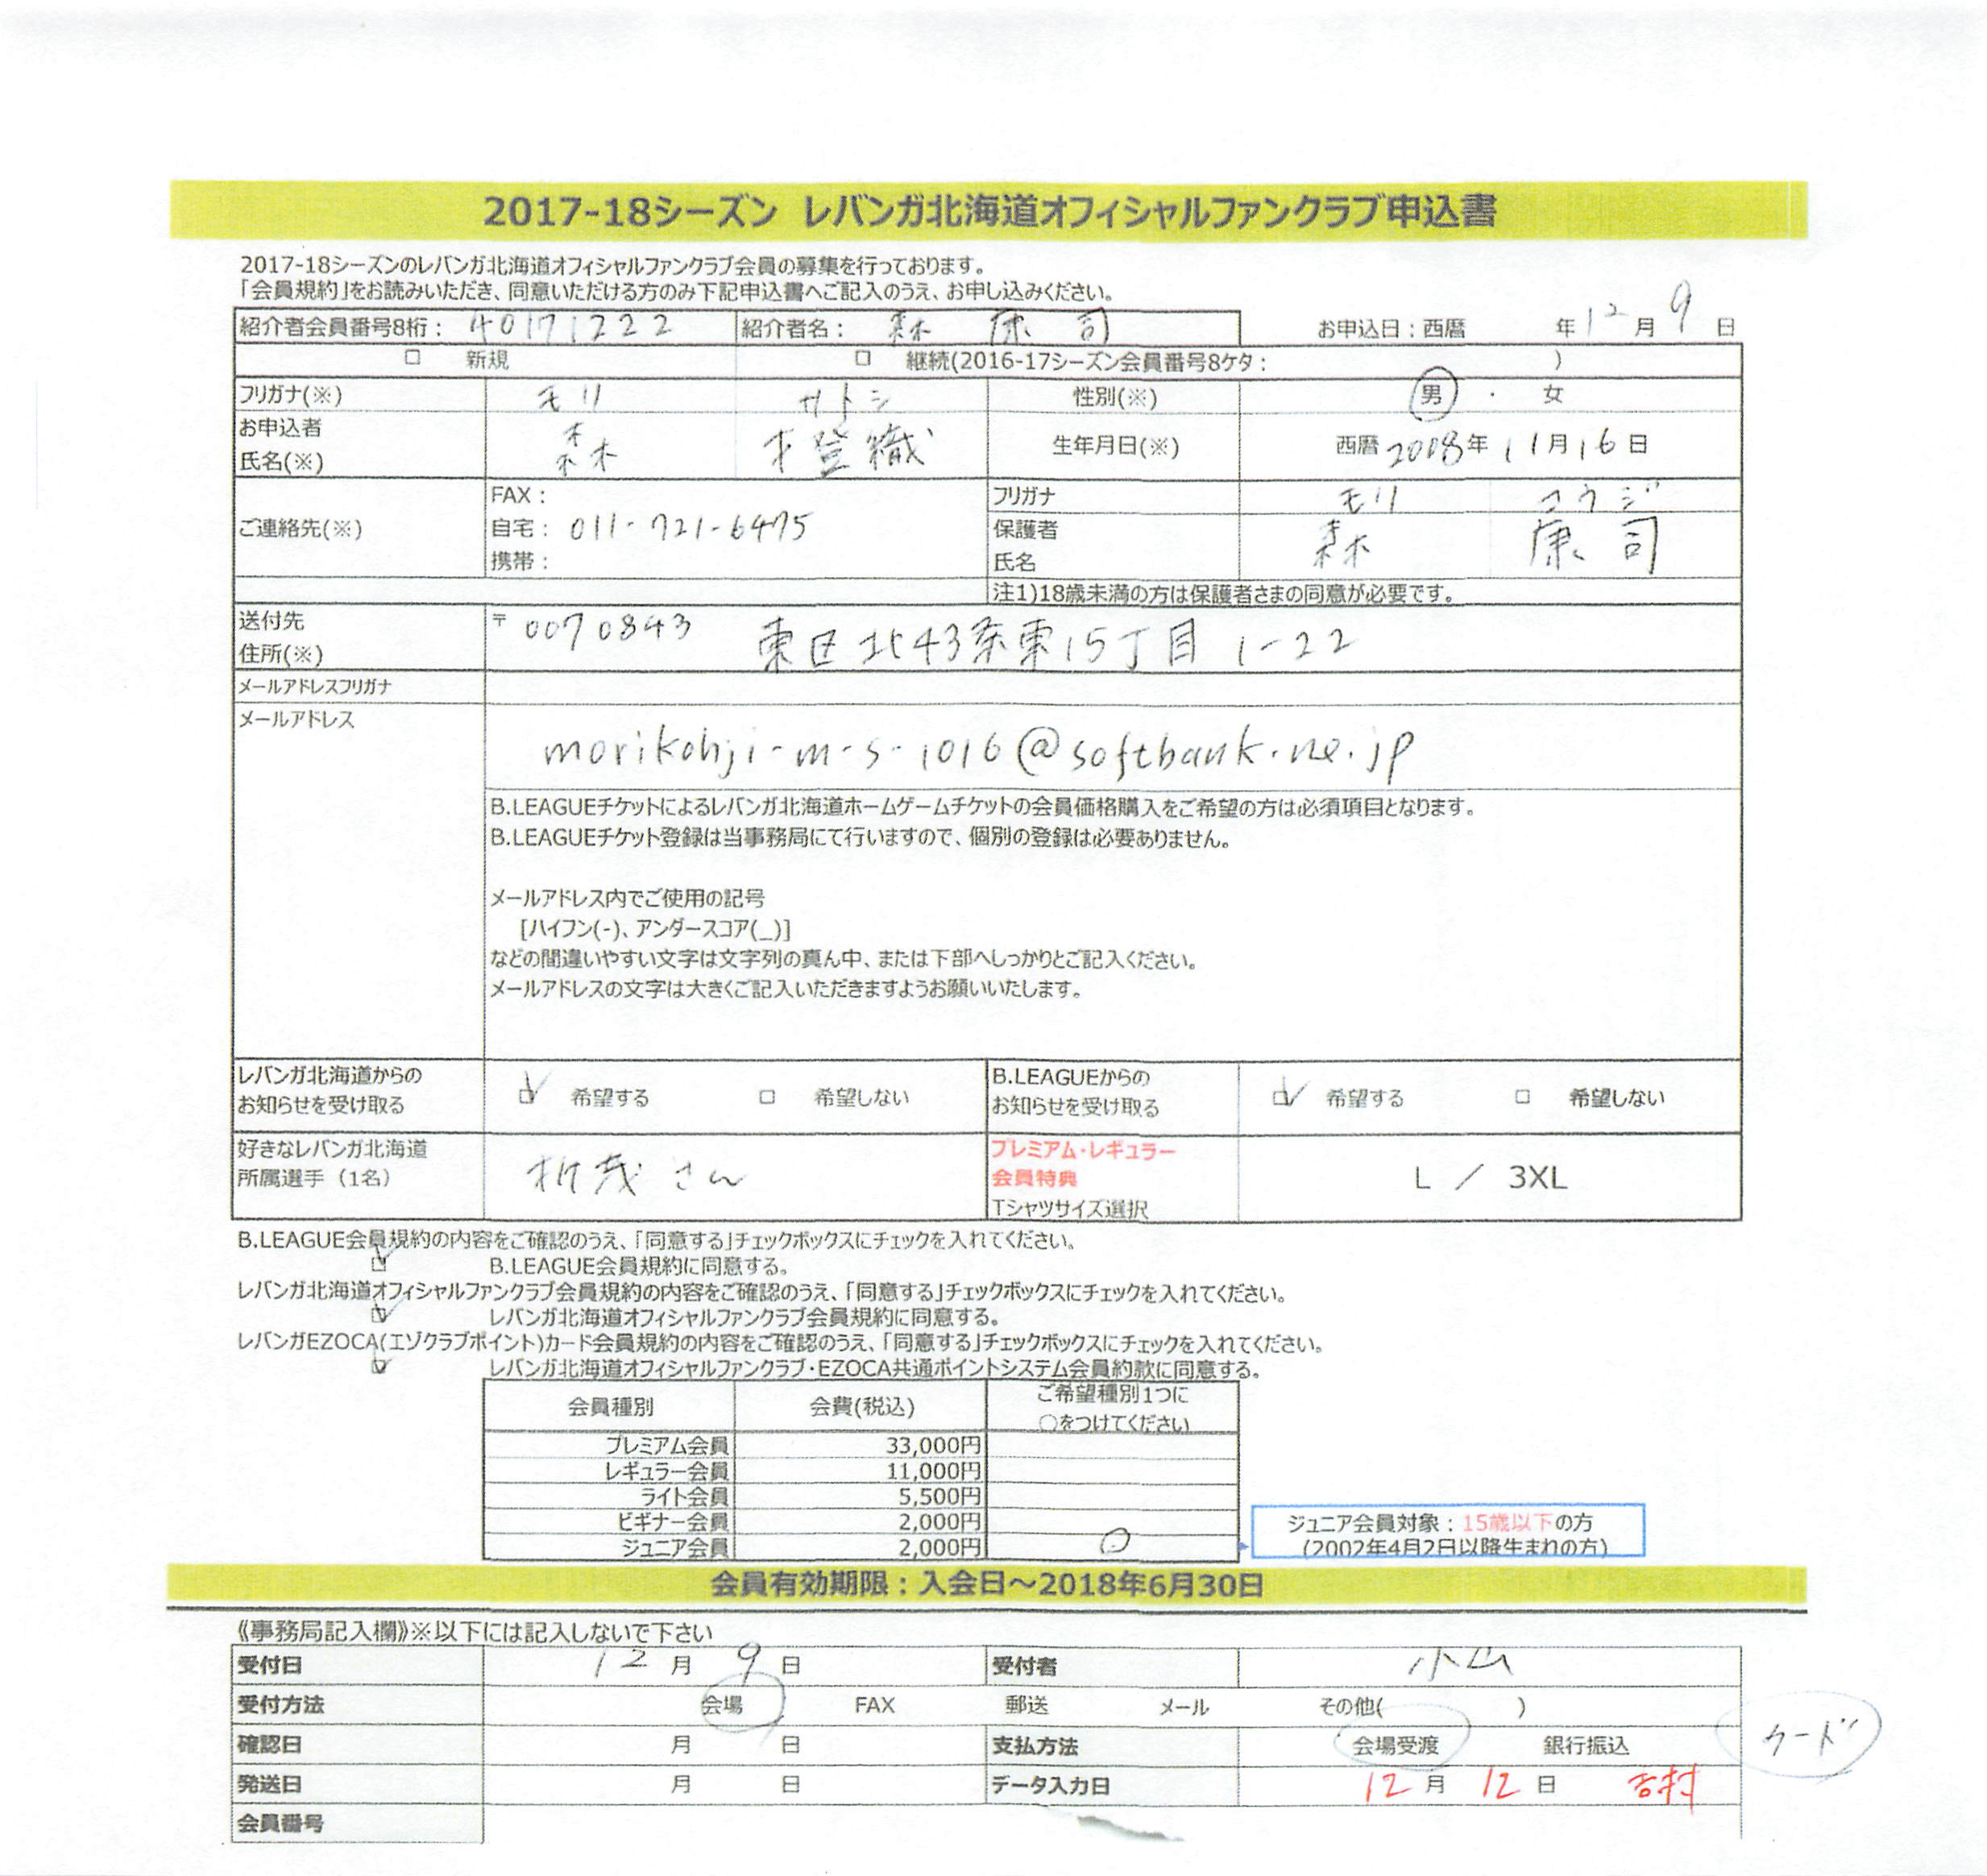 2017-18シーズン レバンガ北海道オフィシャルファンクラブ申込書
2017-18シーズンのレバンガ北海道オフィシャルファンクラブ会員の募集を行っております。
「会員規約」をお読みいただき、同意いただける方のみ下記申込書へご記入のうえ、お申し込みください。
紹介者会員番号8桁： 40171222 紹介者名： 森 康司 お申込日：西暦 年12月9日
□ 新規 □ 継続(2016-17シーズン会員番号8ケタ： )
フリガナ(※) モリ サトシ 性別(※) 男 ・ 女
お申込者
氏名(※) 森 橙織 生年月日(※) 西暦2008年11月16日
ご連絡先(※)
FAX：
自宅： 011-721-6475
携帯：
フリガナ モリ コウジ
保護者
氏名 森 康司
注1)18歳未満の方は保護者さまの同意が必要です。
送付先
住所(※) 〒0070843 東区北43条東15丁目1-22
メールアドレスフリガナ
メールアドレス
morikohji-m-s-1016@softbank.ne.jp
B.LEAGUEチケットによるレバンガ北海道ホームゲームチケットの会員価格購入をご希望の方は必須項目となります。
B.LEAGUEチケット登録は当事務局にて行いますので、個別の登録は必要ありません。
メールアドレス内でご使用の記号
[ハイフン(-)、アンダースコア(_)]
などの間違いやすい文字は文字列の真ん中、または下部へしっかりとご記入ください。
メールアドレスの文字は大きくご記入いただきますようお願いいたします。
レバンガ北海道からの
お知らせを受け取る ☑ 希望する □ 希望しない
B.LEAGUEからの
お知らせを受け取る ☑ 希望する □ 希望しない
好きなレバンガ北海道
所属選手（1名） 折茂さん
プレミアム・レギュラー
会員特典
Tシャツサイズ選択 L ／ 3XL
B.LEAGUE会員規約の内容をご確認のうえ、「同意する」チェックボックスにチェックを入れてください。
☑ B.LEAGUE会員規約に同意する。
レバンガ北海道オフィシャルファンクラブ会員規約の内容をご確認のうえ、「同意する」チェックボックスにチェックを入れてください。
☑ レバンガ北海道オフィシャルファンクラブ会員規約に同意する。
レバンガEZOCA(エゾクラブポイント)カード会員規約の内容をご確認のうえ、「同意する」チェックボックスにチェックを入れてください。
☑ レバンガ北海道オフィシャルファンクラブ・EZOCA共通ポイントシステム会員約款に同意する。
会員種別 会費(税込) ご希望種別1つに
○をつけてください
プレミアム会員 33,000円
レギュラー会員 11,000円
ライト会員 5,500円
ビギナー会員 2,000円
ジュニア会員 2,000円 ○
ジュニア会員対象：15歳以下の方
(2002年4月2日以降生まれの方)
会員有効期限：入会日～2018年6月30日
《事務局記入欄》※以下には記入しないで下さい
受付日 12月 9日 受付者 小山
受付方法 会場 FAX 郵送 メール その他( )
確認日 月 日 支払方法 会場受渡 銀行振込 カード
発送日 月 日 データ入力日 12月 12日 吉村
会員番号